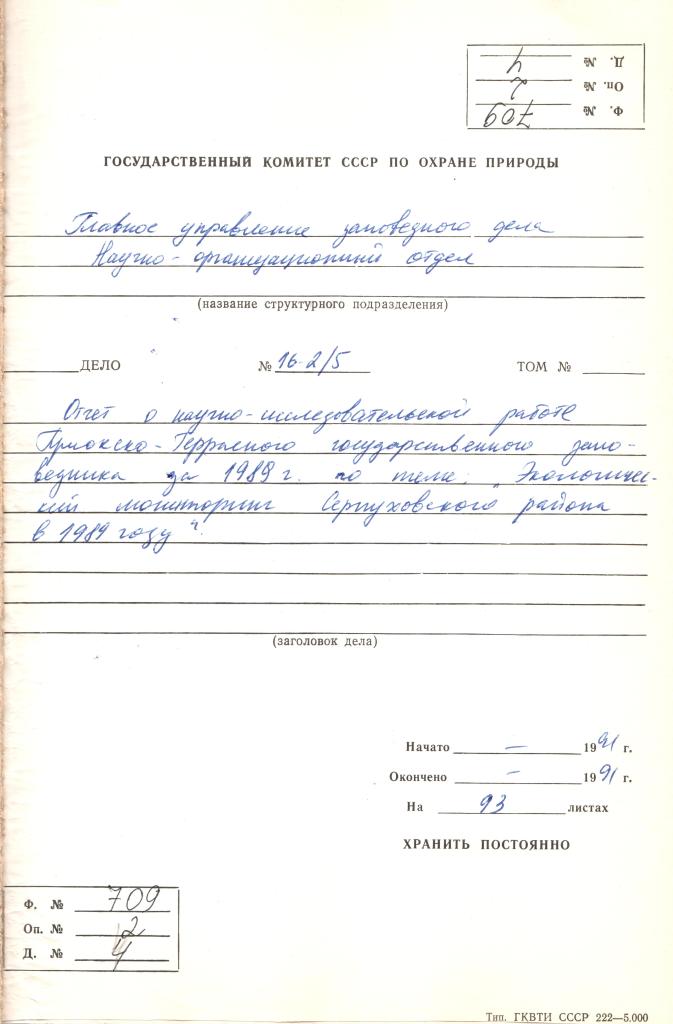 Д. № 4
Оп. № 2
Ф. № 709
ГОСУДАРСТВЕННЫЙ КОМИТЕТ СССР ПО ОХРАНЕ ПРИРОДЫ
Главное управление заповедного дела
Научно-организационный отдел
(название структурного подразделения)
ДЕЛО № 16-2/5 ТОМ №
Отчет о научно-исследовательской работе
Приокско-Террасного государственного запо-
ведника за 1989 г. по теме: „Экологичес-
кий мониторинг Серпуховского района
в 1989 году".
(заголовок дела)
Начато — 1991 г.
Окончено — 1991 г.
На 93 листах
ХРАНИТЬ ПОСТОЯННО
Ф. № 709
Оп. № 2
Д. № 4
Тип. ГКВТИ СССР 222—5.000